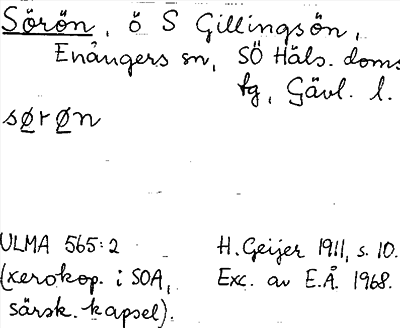 Sörön, ö S Gillingsön,
Enångers sn, SÖ Häls. doms
tg, Gävl. l.
sørøn
ULMA 565:2
(xerokop. i SOA,
särsk. kapsel).
H. Geijer 1911, s. 10.
Exc. av E.Å. 1968.